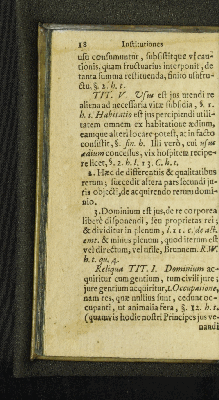 18 Institutiones
usu consumuntur, subsistitque vf cau-
tionis, quam fructuarius interponit, de
tanta summa restituenda, finito usufru-
ctu. §. 2. h. t.
TIT. V. Usus est jus utendi re
aliena ad necessaria vitæ subsidia, §. 1.
h. t. Habitatio est jus percipiendi utili-
tatem omnem ex habitatione ædium,
eamque alteri locare potest, at in facto
consistit, §. fin. h. Illi verò, cui usus
ædium concessus, vix hospitem recipe-
re licet, §. 2. h. l. 13. C. h. t.
2. Hæc de differentiis & qualitatibus
rerum; succedit altera pars secundi ju-
ris objecti, de acquirendo rerum domi-
nio.
3. Dominium est jus, de re corporea
liberè disponendi, seu proprietas rei;
& dividitur in plenum, l. 21. c. de act.
emt. & minus plenum, quod iterum est
vel directum, vel utile, Brunnem. R. W.
h. t. qu. 4.
Reliqua TIT. I. Dominium ac-
quiritur tum gentium, tum civili jure;
jure gentium acquiritur, 1. Occupatione,
nam res, quæ nullius sunt, cedunt oc-
cupanti, ut animalia fera, §. 12. h. t.
(quamvis hodie nostri Principes jus ve-
nandi